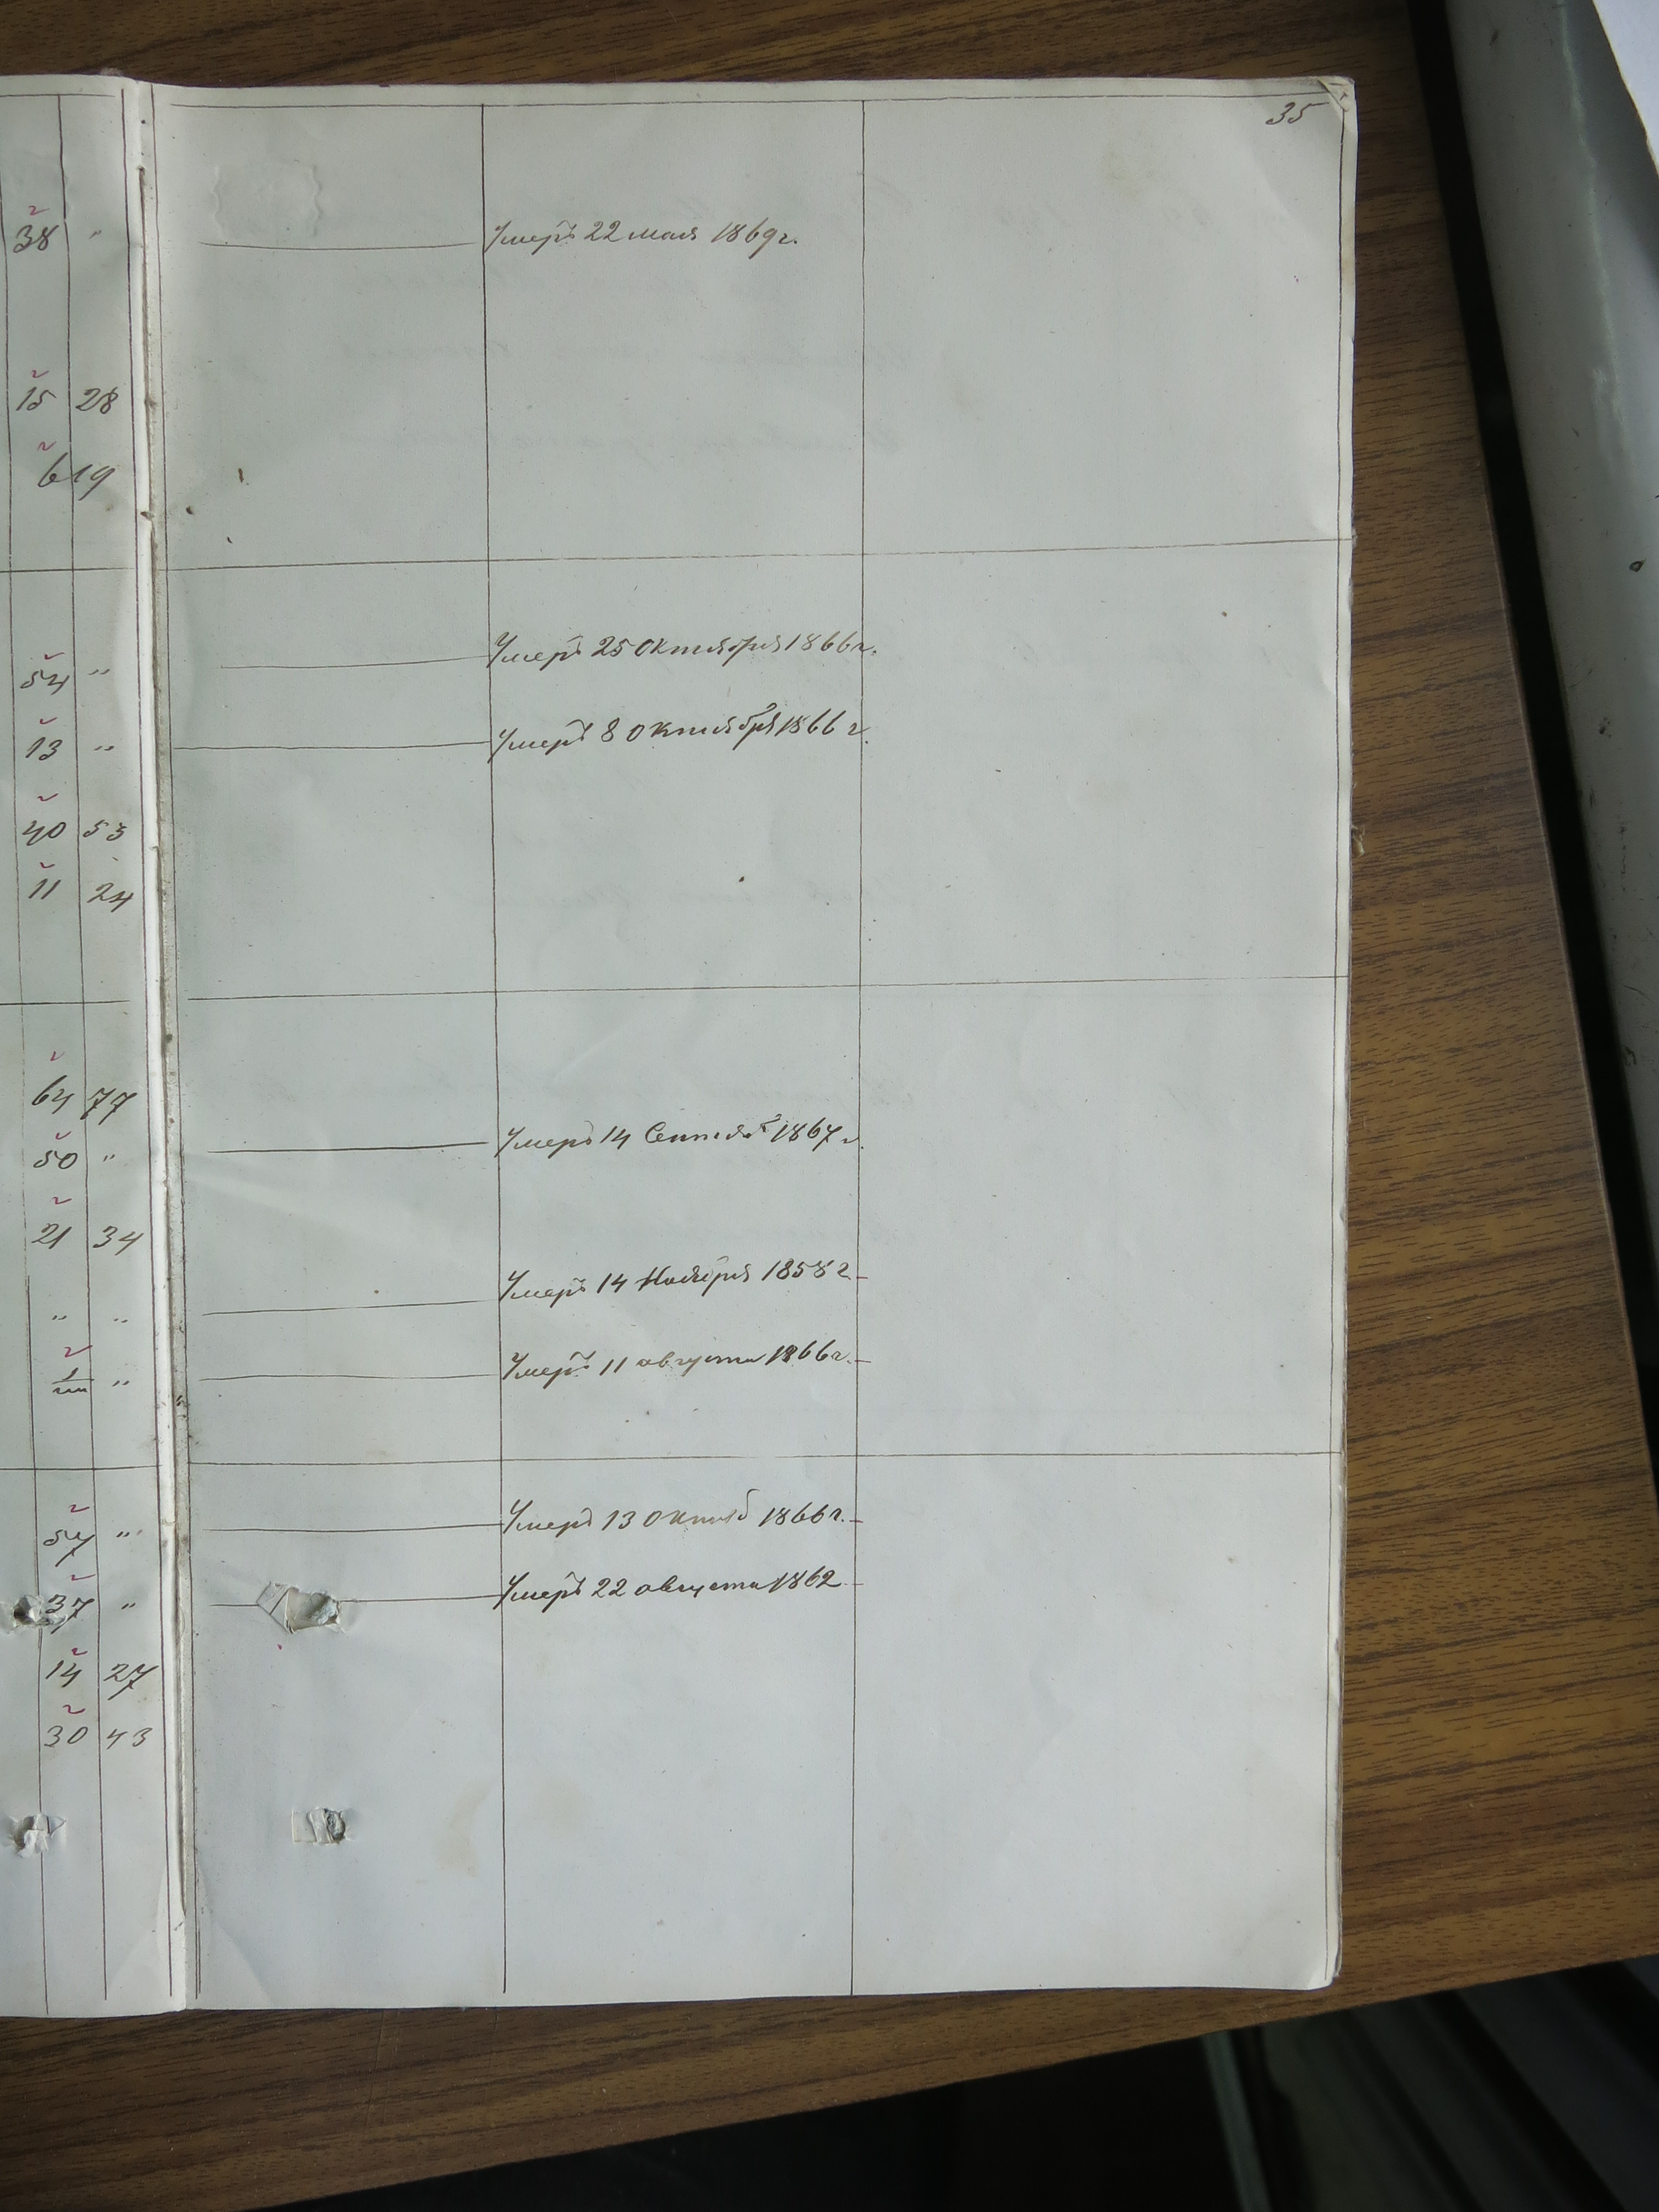 35
38 " Умеръ 22 мая 1869 г.
15 28
6 19
54 " Умеръ 25 Октября 1866 г.
13 " Умеръ 8 Октября 1866 г.
40 53
11 24
64 77
50 " Умеръ 14 Сентяб 1867 г.
21 34
" " Умеръ 14 Ноября 1858 г.
" Умеръ 11 августа 1866 г.
57 " Умеръ 13 Октяб 1866 г.
37 " Умеръ 22 августа 1862
14 27
30 43